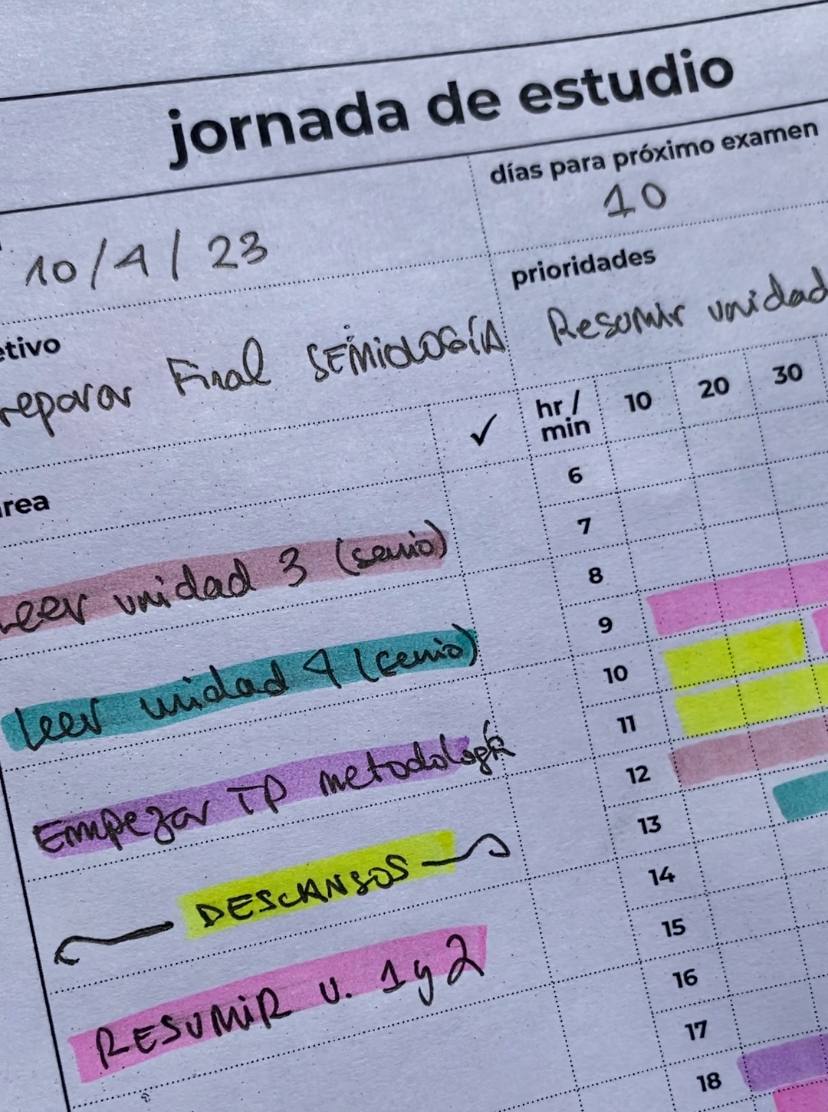 jornada de estudio
días para próximo examen
10/4/23
10
prioridades
etivo
reparar Final SEMIOLOGÍA
Resumir unidad
✓
hr/
min
10
20
30
area
6
7
8
9
10
11
12
13
14
15
16
17
18
Leer unidad 3 (semio)
Leer unidad 4 (semio)
Empezar TP metodología
DESCANSOS
RESUMIR U. 1 y 2